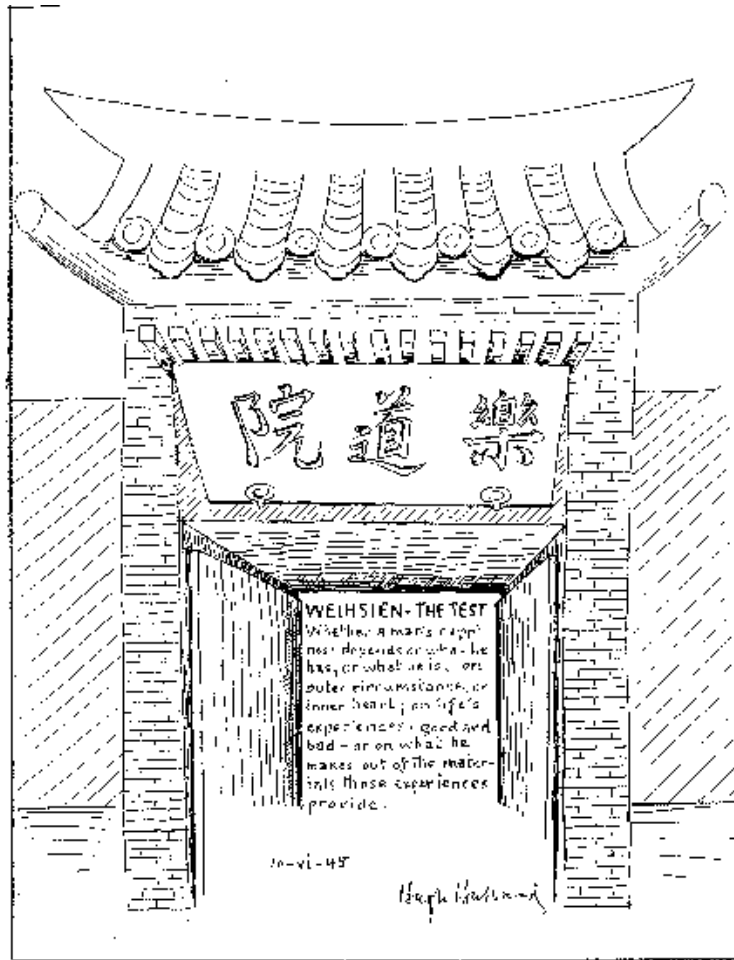 樂道院
WEIHSIEN - THE TEST
Whether a man's happi-
ness depends on what he
has, or what he is; on
outer circumstance, or
inner heart; on life's
experiences - good and
bad - or on what he
makes out of the mater-
ials those experiences
provide.
10-vi-45
Hugh Hubbard